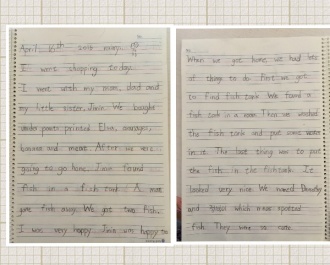 April 16th
I went shopping today.
I went with my mom, dad and
my little sister, Jimin. We bought
underpants printed Elsa, oranges,
banana and meat. After we were
going to go home. Jimin found
fish in a fish tank. A man
gave fish away. We got two fish.
I was very happy. Jimin was happy too
When we got home, we had lots
of things to do. First we got
to find fish tank. We found a
fish tank in a room. Then we washed
the fish tank and put some water
in it. The last thing was to put
the fish in the fishtank. It
looked very nice. We named
and which was spotted
fish. They were so cute.